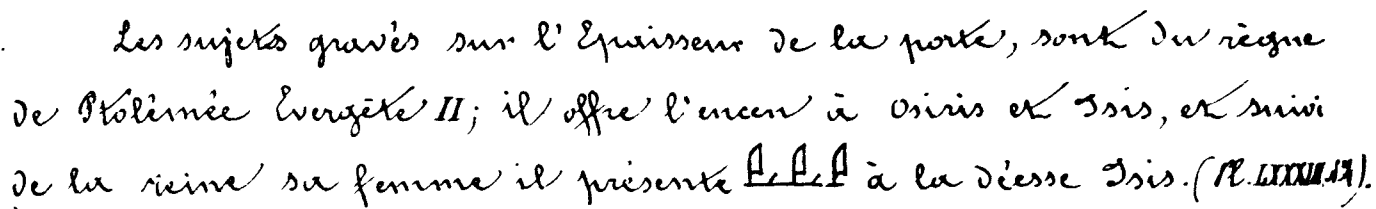 Les sujets gravés sur l'Epaisseur de la porte, sont du règne
de Ptolémée Evergète II; il offre l'encen à Osiris et Isis, et suivi
de la reine sa femme il présente à la déesse Isis. (Pl.